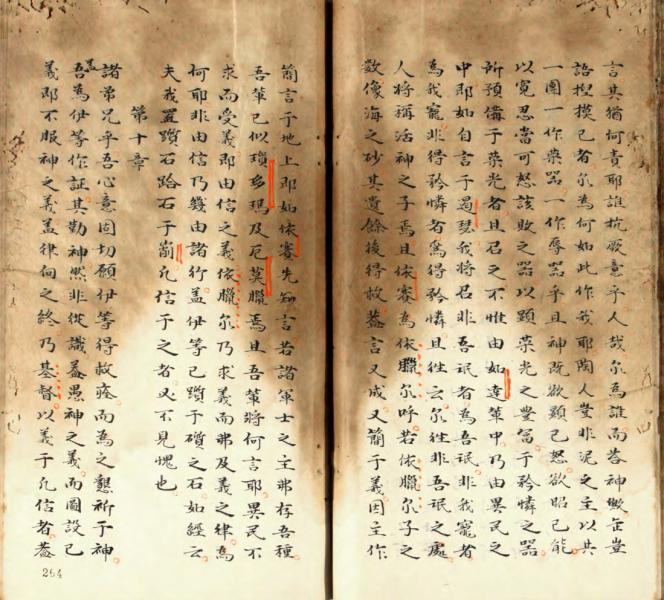 言其猶何責耶誰抗厥意乎人哉尔為誰而荅神歟缶豈
語捏摸已者尔為何如此作我耶陶人豈非泥之主以共
一團一作榮噐一作辱噐乎且神既欲顯已怒欲昭已能
以寬忍當可怒該敗之噐以顯榮光之豊富于矜憐之噐
所預備于榮光者且召之不惟由如達軰中乃由異民之
中即如自言于遏瑟我將召非吾氓者為吾氓非我寵者
為我寵非得矜憐者為得矜憐且徃云尔徃非吾氓之處
人將稱活神之子焉且依賽為依臘尔呼若依臘尔子之
数像海之砂其遺餘後得救葢言又成又簡于義因主作
簡言于地上即如依賽先知言若諸軍士之主弗存吾種
吾軰已似瓊多瑪及厄莫臘焉且吾軰將何言耶異民不
求而受義即由信之義依臘尔乃求義而弗及義之律為
何耶非由信乃幾由諸行盖伊等已躓于礩之石如經云
夫我置躓石跲石于凢信于之者必不見愧也
第十章
諸弟兄乎吾心意固切願伊等得救痊而為之懇祈于神
吾盖為伊等作証其勤神然非從識葢愚神之義而圖設己
義即不服神之義盖律向之終乃基督以義于凢信者葢
264